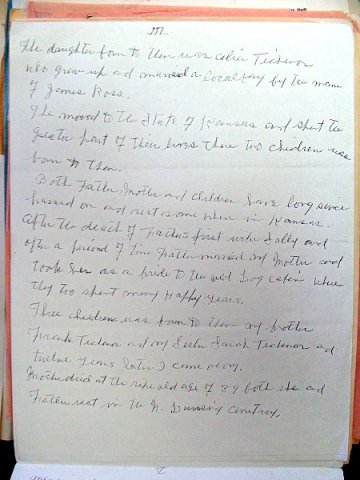 III.
The daughter born to them was Celia Tichenor
who grew up and married a local boy by the name
of James Ross.
The moved to the State of Kansas and spent the
greater part of their lives there two children was
born to them.
Both Father, Mother and children have long since
passed on and rest some where in Kansas.
After the death of Fathers first wife Sally and
after a period of time Father married my Mother and
took her as a bride to the old Log cabin where
they too spent many Happy years.
Three children was born to them my brother
Frank Tichenor and my Sister Sarah Tichenor and
twelve years later I came along.
Mother died at the ripe old age of 89 both she and
Father rest in the N. Cemetary.